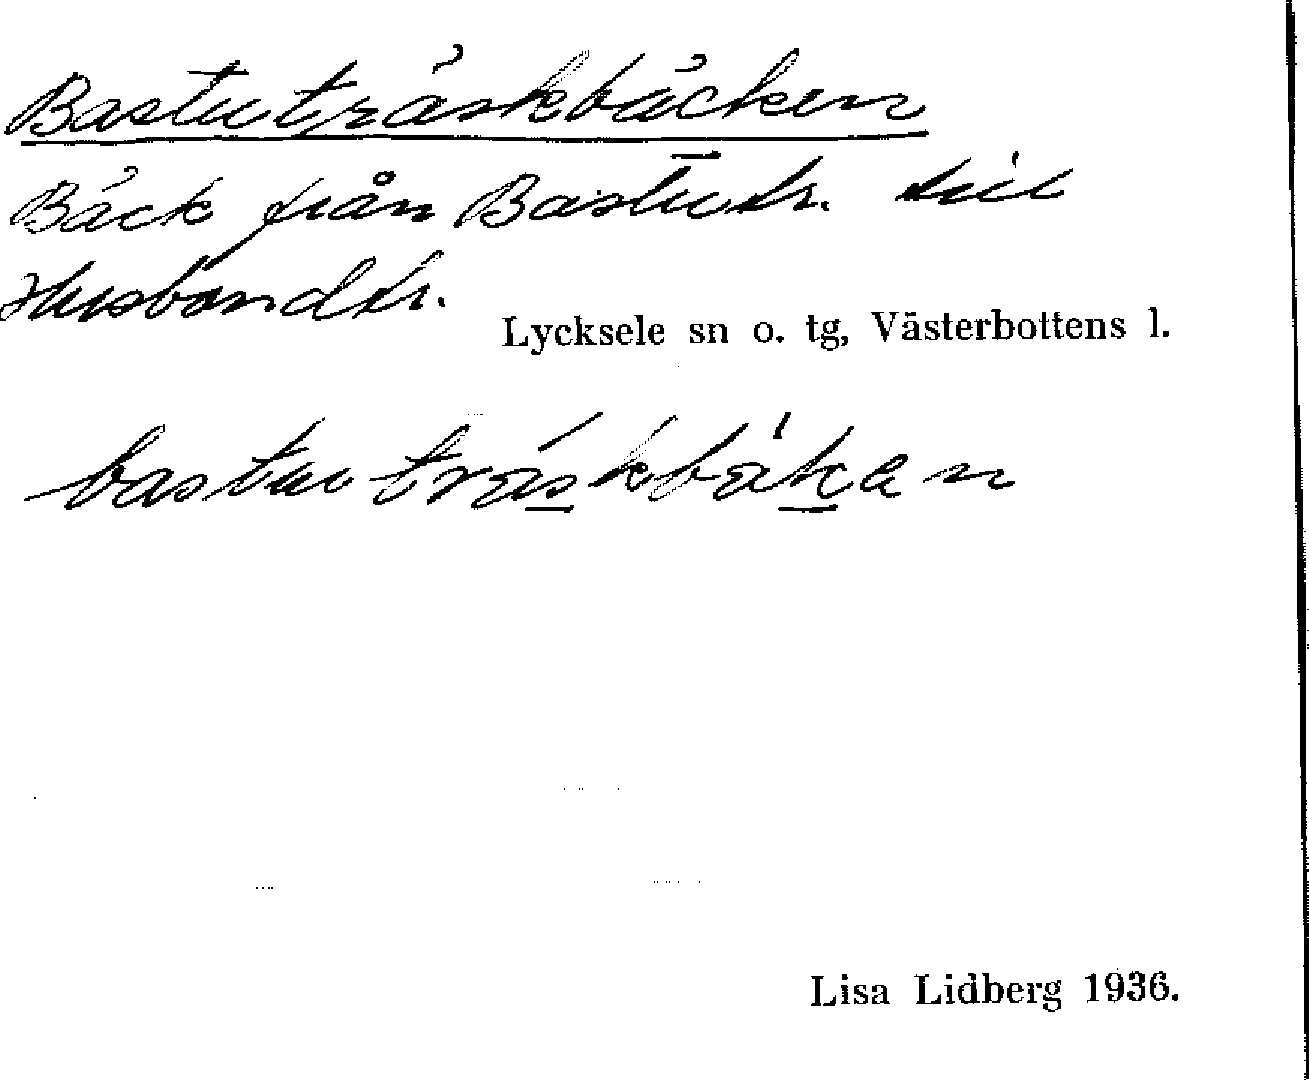 Bastuträskbäcken
Bäck från Bastutr. till
Husbondtr.
Lycksele sn o. tg, Västerbottens l.
bastuträskbäkan
Lisa Lidberg 1936.